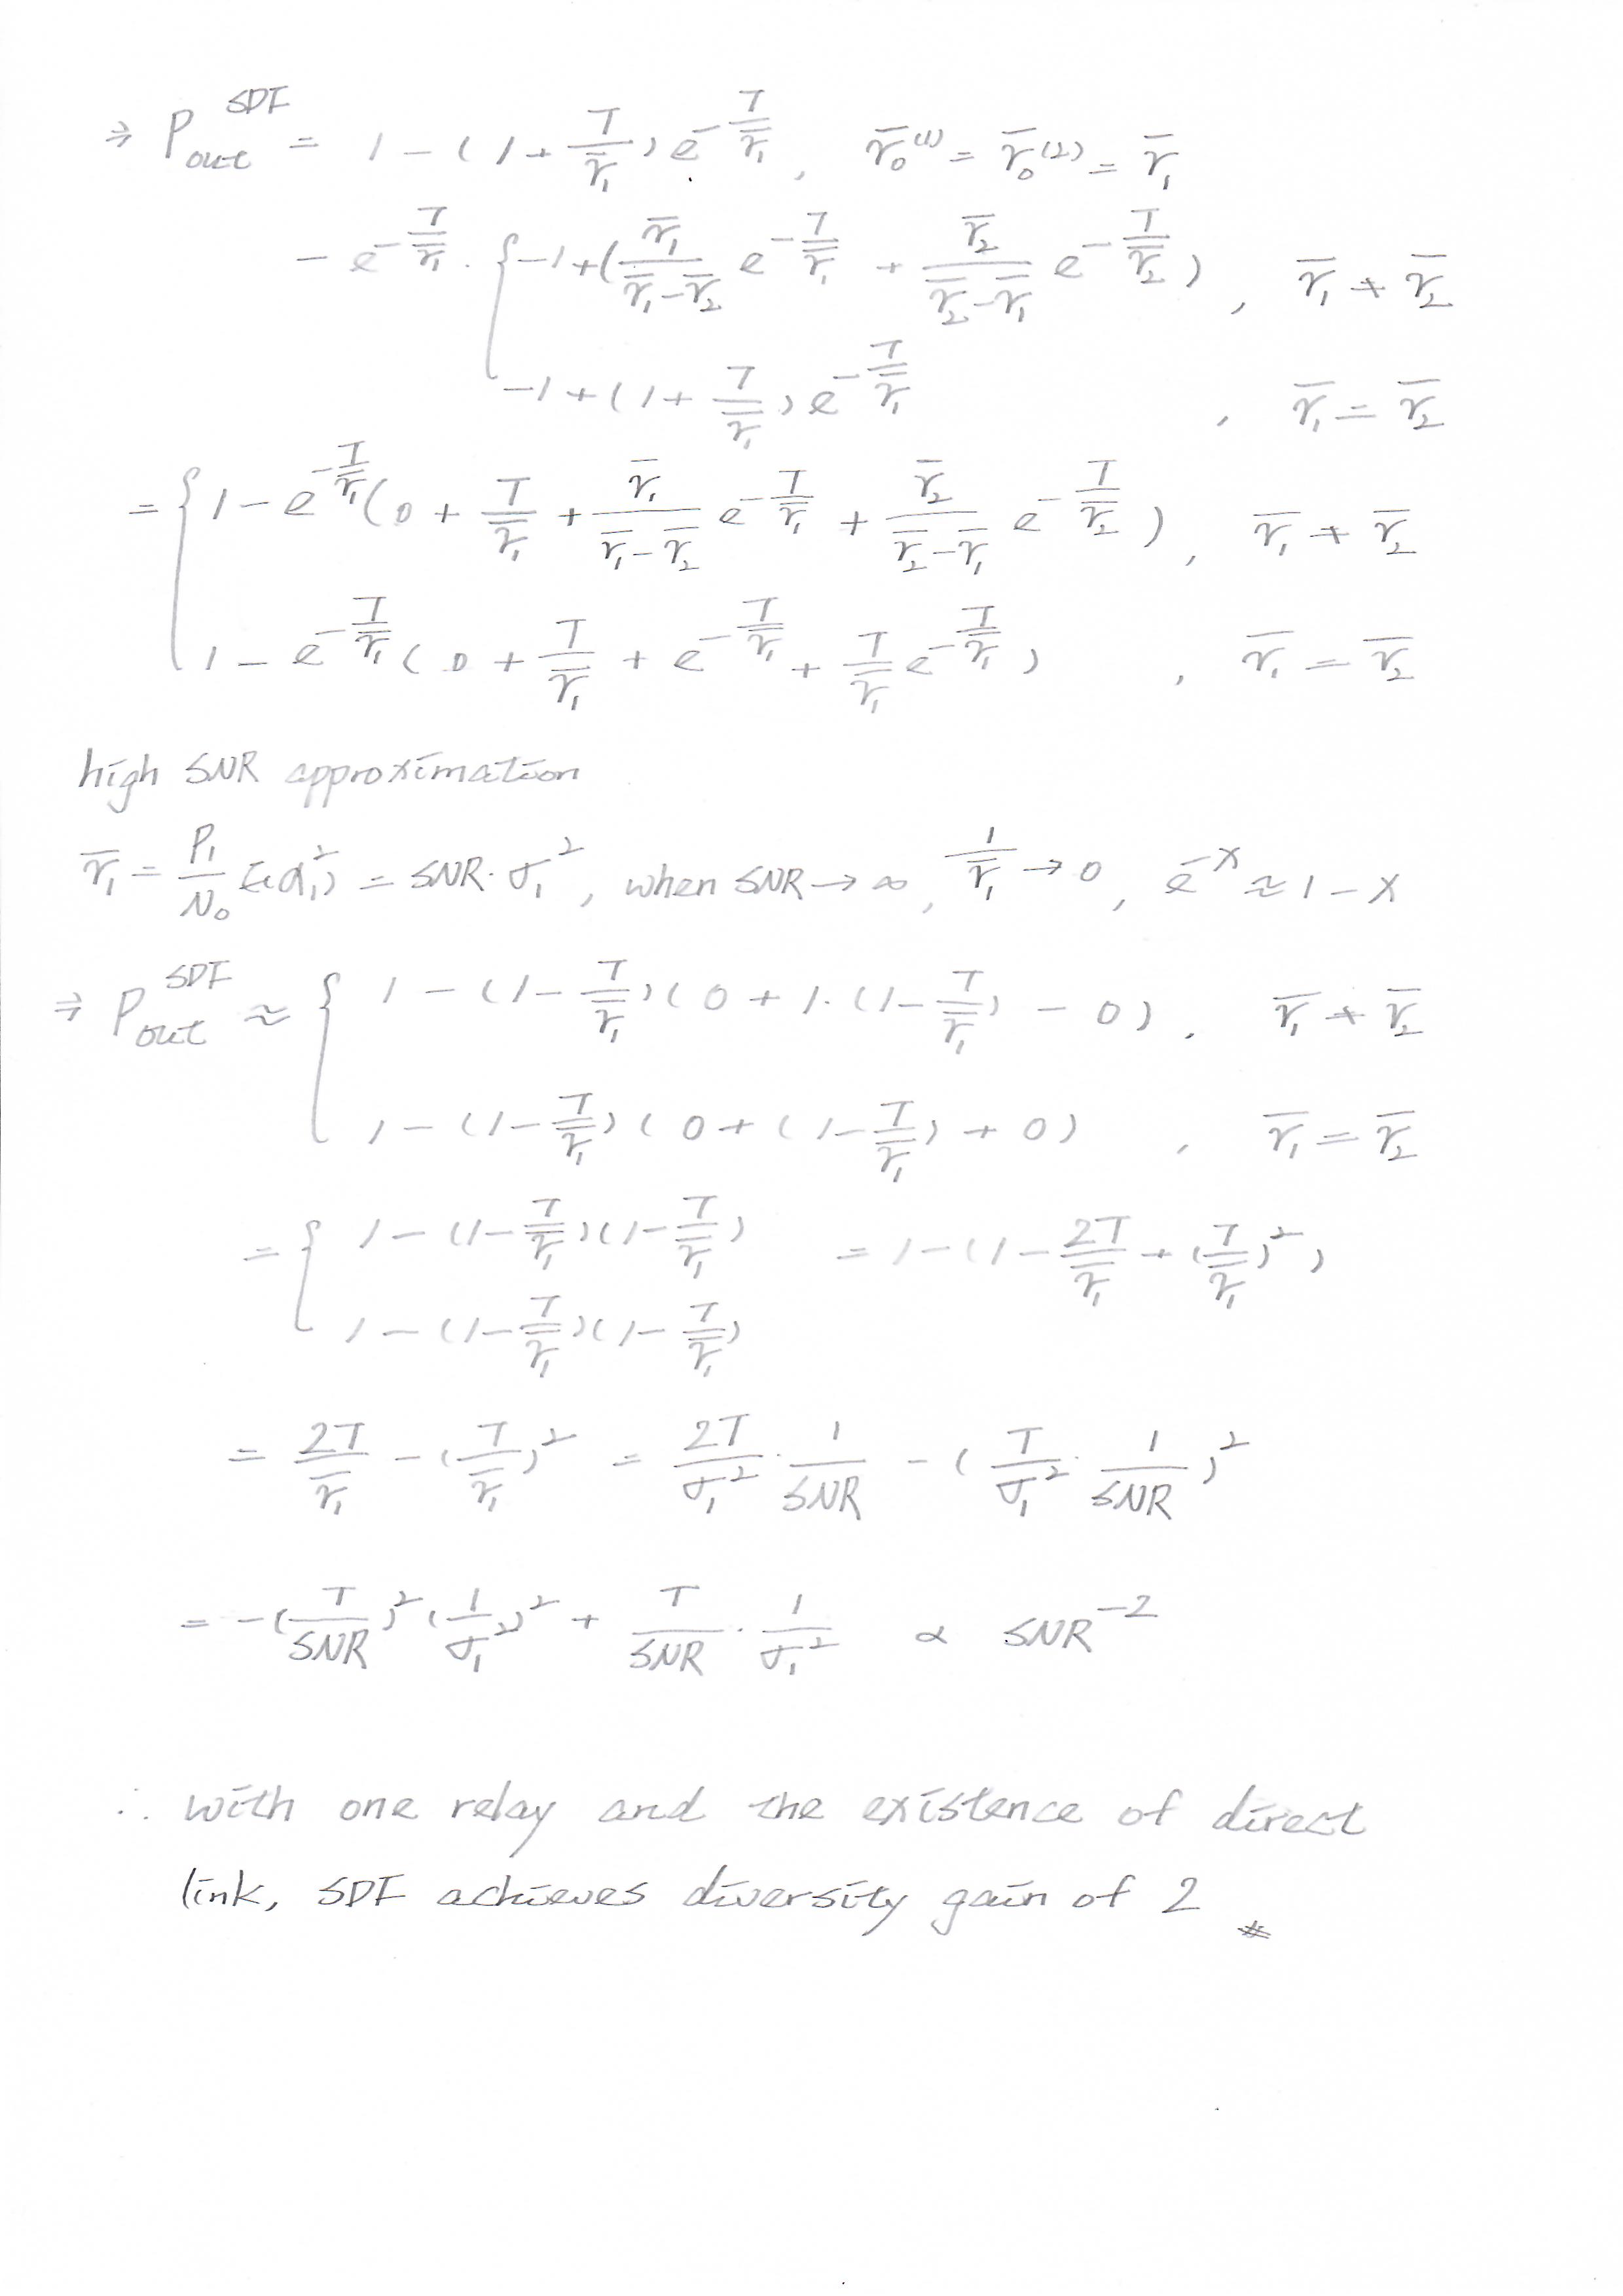 ⇒ P_out^SDF = 1 - (1 + T/γ̄₁) e^(-T/γ̄₁) , γ̄₀⁽¹⁾ = γ̄₀⁽²⁾ = γ̄₁
- e^(-T/γ̄₁) · { -1 + (γ̄₁/(γ̄₁-γ̄₂) e^(-T/γ̄₁) + γ̄₂/(γ̄₂-γ̄₁) e^(-T/γ̄₂)) , γ̄₁ ≠ γ̄₂
-1 + (1 + T/γ̄₁) e^(-T/γ̄₁) , γ̄₁ = γ̄₂
= { 1 - e^(-T/γ̄₁) (0 + T/γ̄₁ + γ̄₁/(γ̄₁-γ̄₂) e^(-T/γ̄₁) + γ̄₂/(γ̄₂-γ̄₁) e^(-T/γ̄₂)) , γ̄₁ ≠ γ̄₂
1 - e^(-T/γ̄₁) (0 + T/γ̄₁ + e^(-T/γ̄₁) + T/γ̄₁ e^(-T/γ̄₁)) , γ̄₁ = γ̄₂
high SNR approximation
γ̄₁ = P₁/N₀ E(α₁²) = SNR · σ₁² , when SNR → ∞ , 1/γ̄₁ → 0 , e^-x ≈ 1 - x
⇒ P_out^SDF ≈ { 1 - (1 - T/γ̄₁)(0 + 1·(1 - T/γ̄₁) - 0) , γ̄₁ ≠ γ̄₂
1 - (1 - T/γ̄₁)(0 + (1 - T/γ̄₁) + 0) , γ̄₁ = γ̄₂
= { 1 - (1 - T/γ̄₁)(1 - T/γ̄₁) = 1 - (1 - 2T/γ̄₁ + (T/γ̄₁)²)
1 - (1 - T/γ̄₁)(1 - T/γ̄₁)
= 2T/γ̄₁ - (T/γ̄₁)² = 2T/σ₁² · 1/SNR - (T/σ₁² · 1/SNR)²
= -(T/SNR)² (1/σ₁²)² + T/SNR · 1/σ₁² ∝ SNR⁻²
∴ with one relay and the existence of direct
link, SDF achieves diversity gain of 2 #